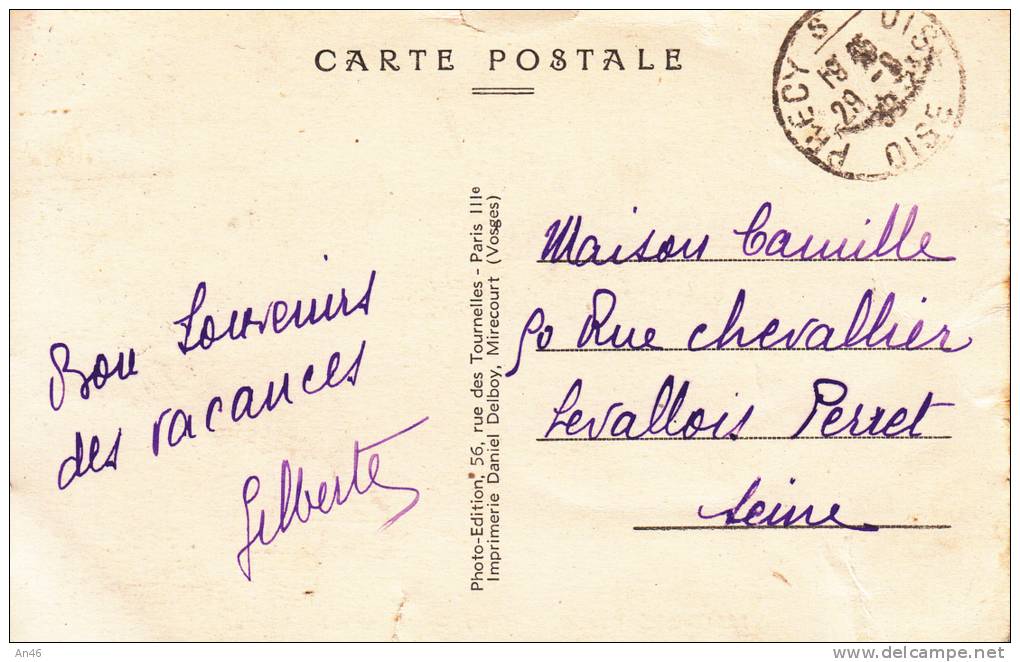 CARTE POSTALE
PRECY S OISE
OISE
29
Bon Souvenirs
des vacances
Gilberte
Photo-Edition, 56, rue des Tournelles - Paris IIIe
Imprimerie Daniel Delboy, Mirecourt (Vosges)
Maison Camille
50 Rue chevallier
Levallois Perret
Seine
An46
delcampe.net